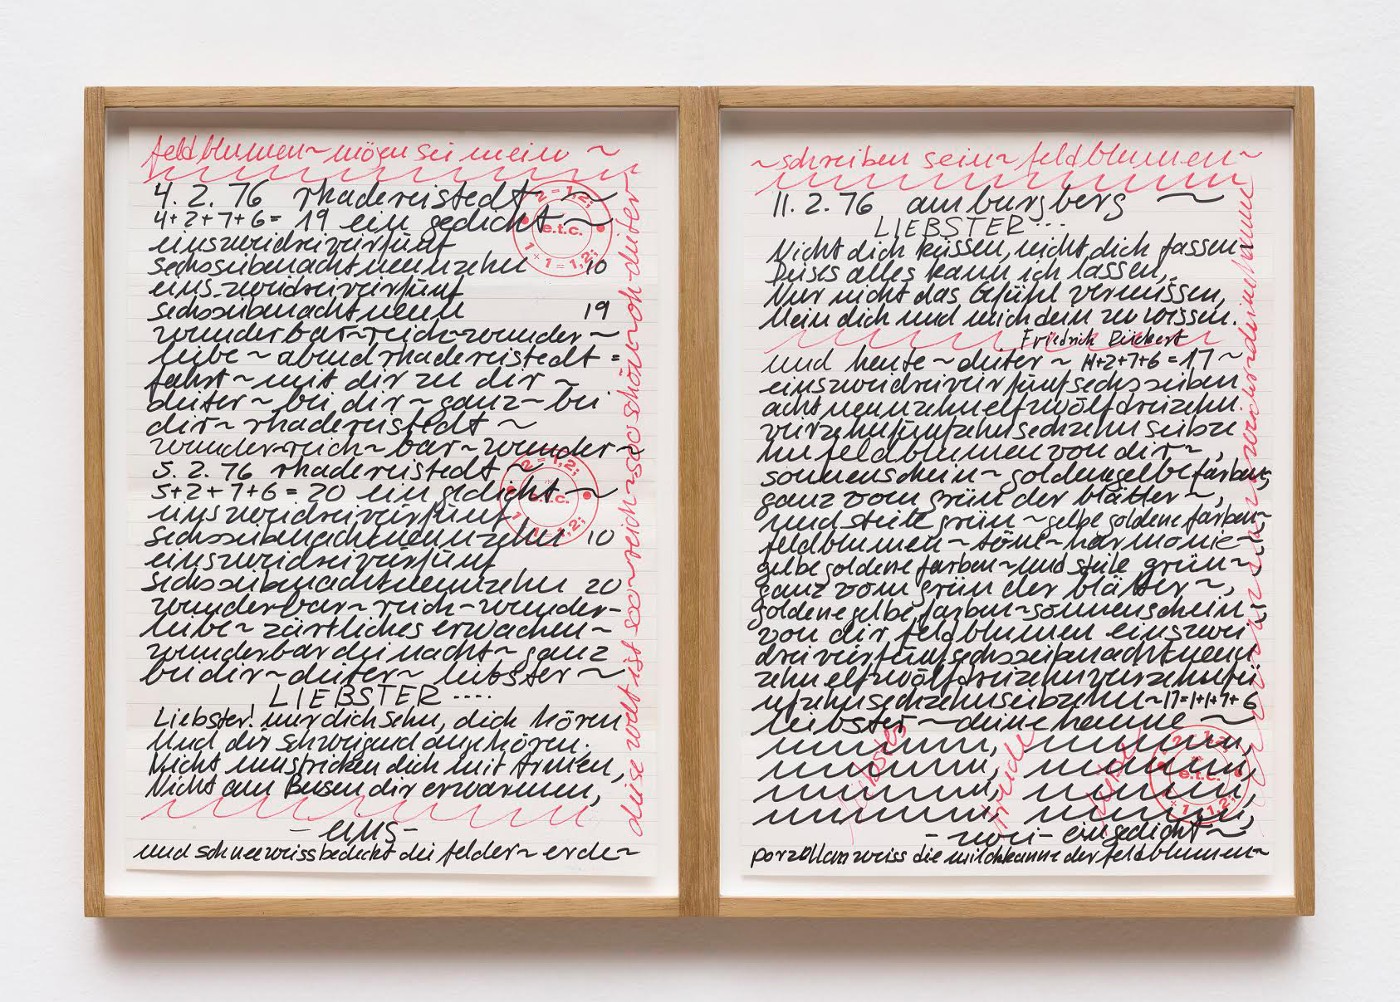 feldblumen~mögen sie mein ~
4. 2. 76 rhadereistedt ~
4+2+7+6= 19 ein gedicht ~
einszweidreivierfünf
sechssiebenachtneunzehn 10
eins-zweidreivierfünf
sechssiebenachtneun 19
wunderbar~reich~wunder~
liebe~ abend rhadereistedt =
fahrt ~ mit dir zu dir ~
dieter ~ bei dir ~ ganz ~ bei
dir ~ rhadereistedt ~
wunder~reich~ bar~wunder~
5. 2. 76 rhadereistedt ~
5+2+7+6= 20 ein gedicht ~
einszweidreivierfünf
sechssiebenachtneunzehn 10
einszweidreivierfünf
sechssiebenachtneunzehn 20
wunderbar~ reich~wunder-
liebe~ zärtliches erwachen~
wunderbar die nacht~ ganz
bei dir~dieter~ liebster ~
LIEBSTER ····
Liebster! nur dich sehn, dich hören
Und dir schweigend angehören.
Nicht umstricken dich mit Armen,
Nicht am Busen dir erwarmen,
- eins -
und schneeweiss bedeckt die felder~ erde~
diese welt ist soo~reich~soo schön~oh~dieter~
2 = 1,2;
e.t.c.
1 + 1 = 1,2;
2 = 1,2;
e.t.c.
1 + 1 = 1,2;
~schreiben sein~ feldblumen~
11. 2. 76 amburgberg ~
LIEBSTER ···
Nicht dich küssen, nicht dich fassen
Dieses alles kann ich lassen,
Nur nicht das Gefühl vermissen,
Mein dich und mich dein zu wissen.
Friedrich Rückert
und heute ~ dieter ~ 11+2+7+6=17 ~
einszweidreivierfünfsechssieben
achtneunzehnelfzwölfdreizehn
vierzehnfünfzehnsechzehnsiebze
hn feldblumen von dir ~,
sonnenschein~ goldengelbe farben,
ganz vom grün der blätter ~,
und stiele grün ~ gelbe goldene farben~
feldblumen ~ töne~harmonie~
gelbe goldene farben~und stiele grün~
ganz vom grün der blätter ~,
goldene gelbe farben~sonnenschein
von dir feldblumen einszwei
dreivierfünfsechssiebenachtneun
zehnelfzwölfdreizehnvierzehnfü
nfzehnsechzehnsiebzehn ~17=1+1+7+6
liebster ~ deine hanne ~
- zwei - ein gedicht ~
porzellanweiss die milchkanne der feldblumen~
liebster
e.t.c.